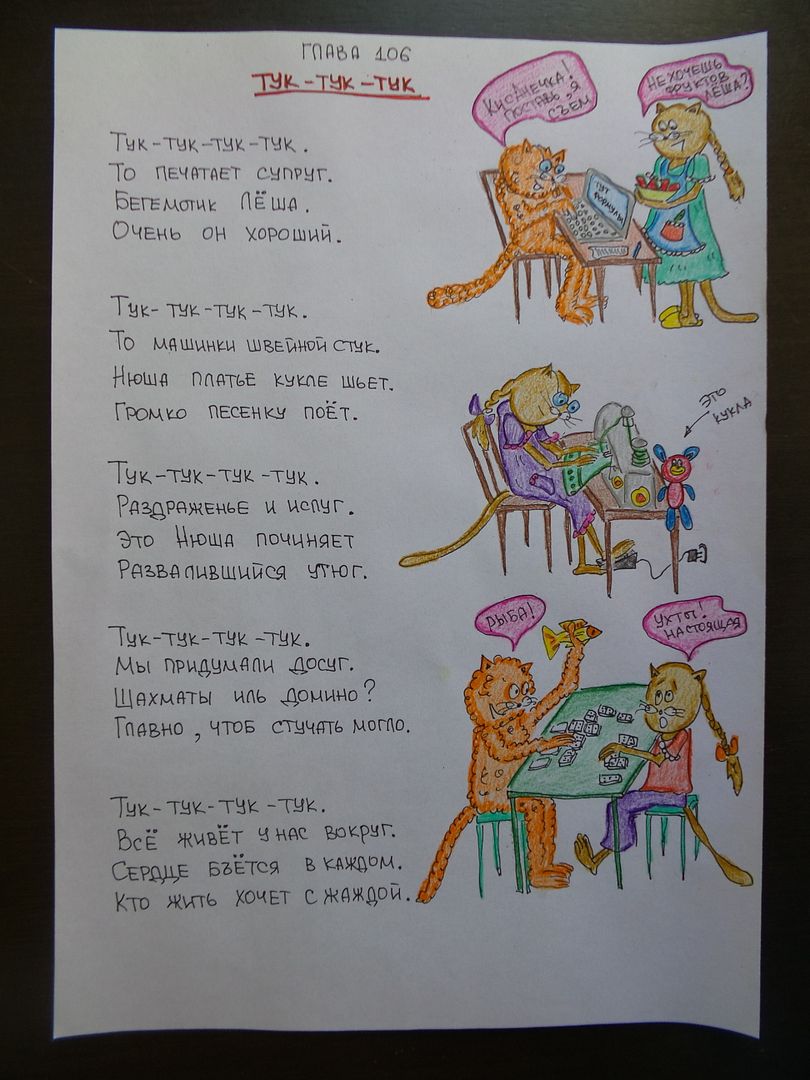 ГЛАВА 106
ТУК-ТУК-ТУК
ТУК-ТУК-ТУК-ТУК.
ТО ПЕЧАТАЕТ СУПРУГ.
БЕГЕМОТИК ЛЁША.
ОЧЕНЬ ОН ХОРОШИЙ.
ТУК-ТУК-ТУК-ТУК.
ТО МАШИНКИ ШВЕЙНОЙ СТУК.
НЮША ПЛАТЬЕ КУКЛЕ ШЬЕТ.
ГРОМКО ПЕСЕНКУ ПОЁТ.
ТУК-ТУК-ТУК-ТУК.
РАЗДРАЖЕНЬЕ И ИСПУГ.
ЭТО НЮША ПОЧИНЯЕТ
РАЗВАЛИВШИЙСЯ УТЮГ.
ТУК-ТУК-ТУК-ТУК.
МЫ ПРИДУМАЛИ ДОСУГ.
ШАХМАТЫ ИЛЬ ДОМИНО?
ГЛАВНО, ЧТОБ СТУЧАТЬ МОГЛО.
ТУК-ТУК-ТУК-ТУК.
ВСЁ ЖИВЁТ У НАС ВОКРУГ.
СЕРДЦЕ БЪЁТСЯ В КАЖДОМ.
КТО ЖИТЬ ХОЧЕТ С ЖАЖДОЙ.
КИСАНЕЧКА!
ПОСТАВЬ, Я
СЪЕМ
НЕ ХОЧЕШЬ
ФРУКТОВ
ЛЁША?
ТУТ
ФОРМУЛЫ
ЭТО
КУКЛА
РЫБА!
УХТЫ!
НАСТОЯЩАЯ